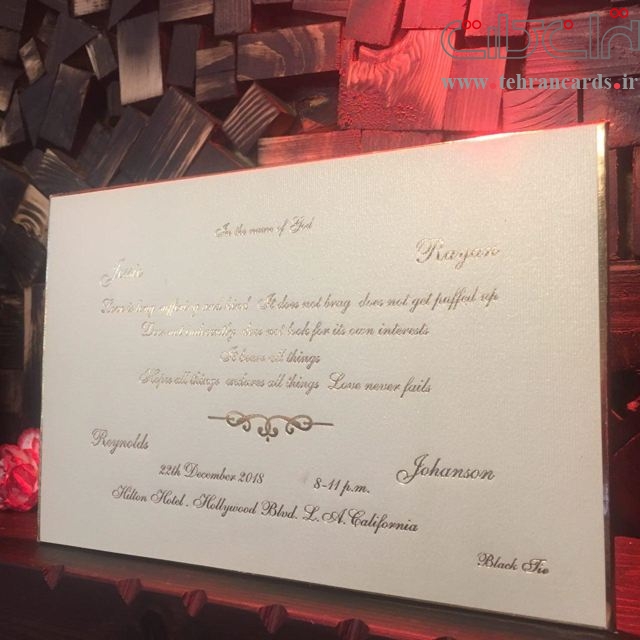 www.tehrancards.ir
In the name of God
Rayan
Love is long suffering and kind It does not brag does not get puffed up
does not look for its own interests
It bears all things
Hopes all things endures all things Love never fails
Reynolds
Johanson
22th December 2018 8-11 p.m.
Hilton Hotel . Hollywood Blvd. L.A.California
Black Tie